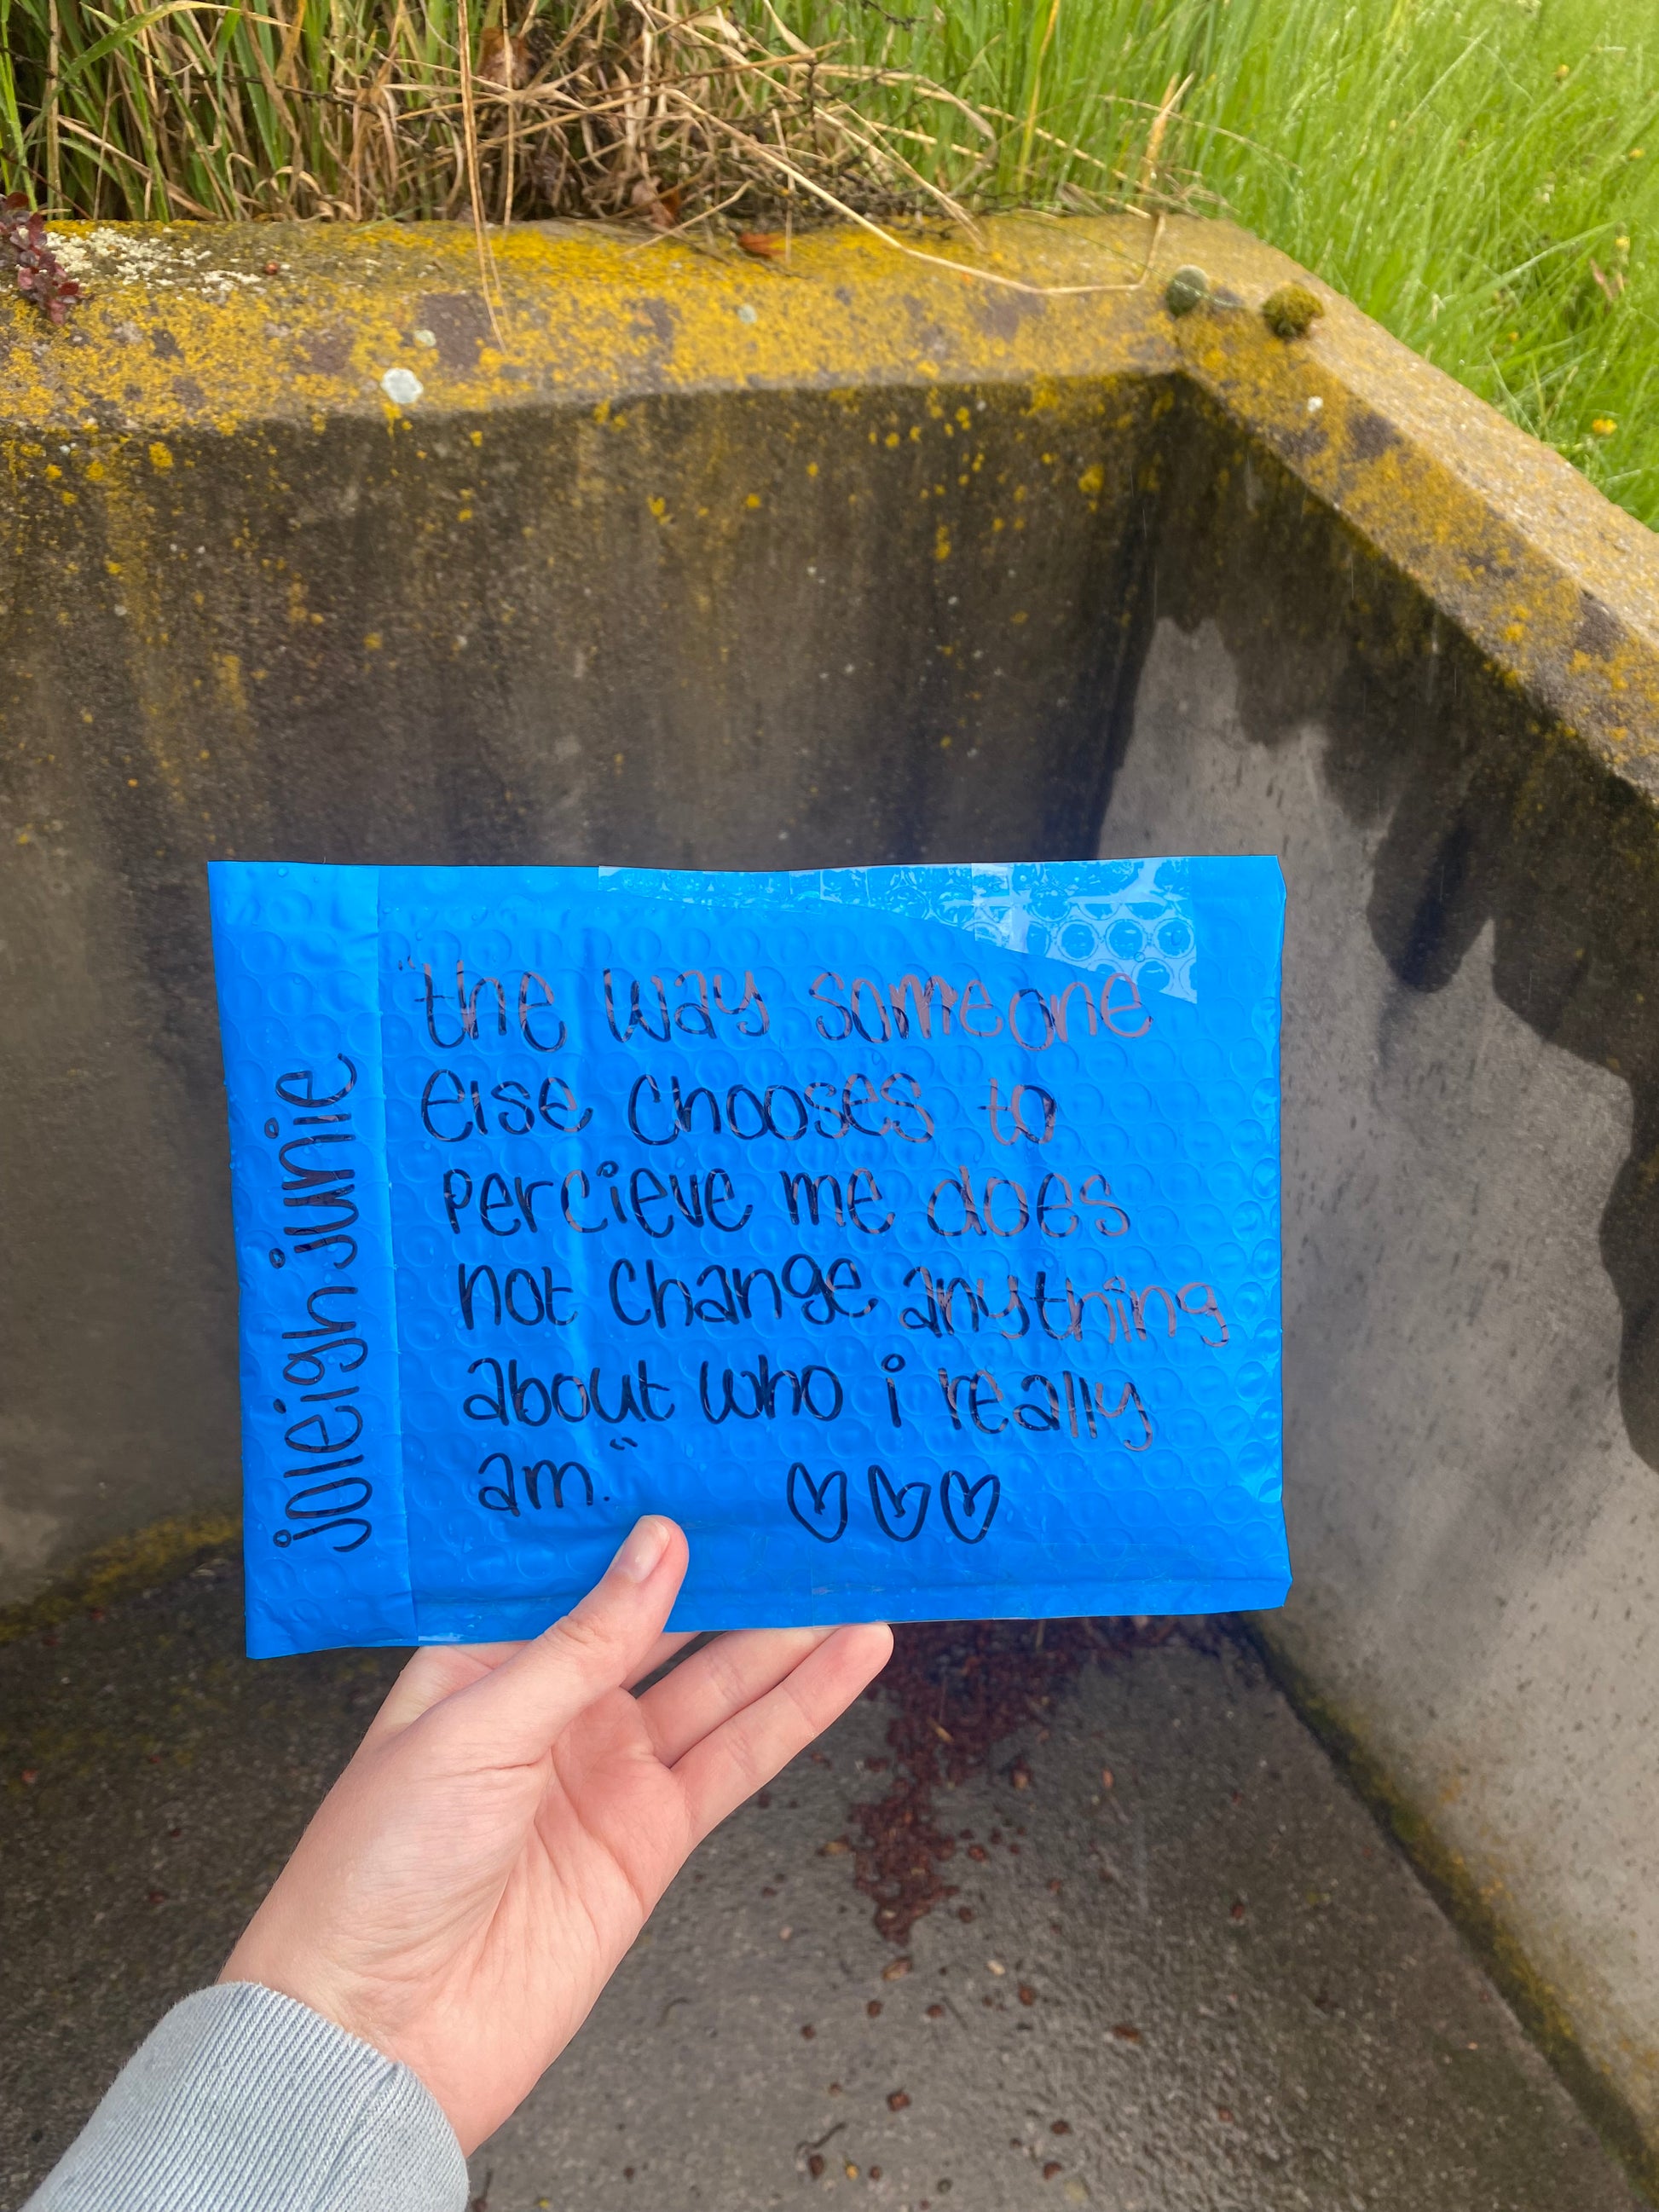 joleighjunie
"the way someone
else chooses to
percieve me does
not change anything
about who i really
am."